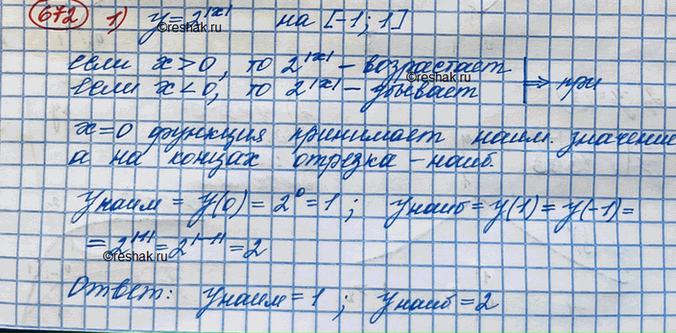 672 1) y = 2^|x| на [-1; 1]
©reshak.ru
если x > 0, то 2^|x| - возрастает
если x < 0, то 2^|x| - убывает ⇒ при
©reshak.ru
x=0 функция принимает наим. значение
а на концах отрезка - наиб.
Yнаим = y(0) = 2^0 = 1 ; yнаиб = y(1) = y(-1) =
= 2^|1| = 2^|-1| = 2
©reshak.ru
Ответ: Yнаим = 1 ; yнаиб = 2